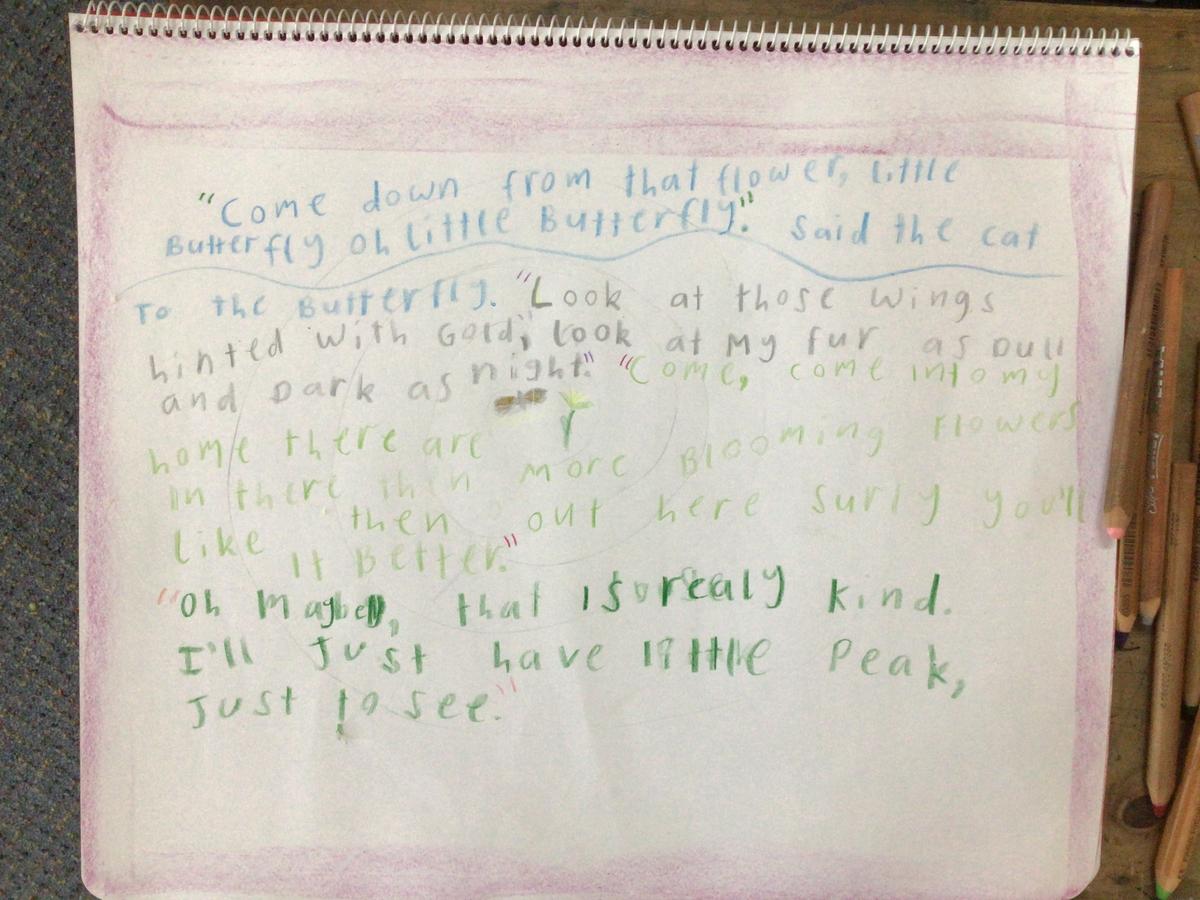 "Come down from that flower, little
Butterfly oh little Butterfly." Said the cat
To the Butterfly. "Look at those wings
hinted with Gold, look at My fur as Dull
and Dark as night." "Come, come into my
home there are
in there then more Blooming Flowers
like then out here surly you'll
It Better."
"Oh Maybe, that is realy kind.
I'll Just have little Peak,
Just to see."